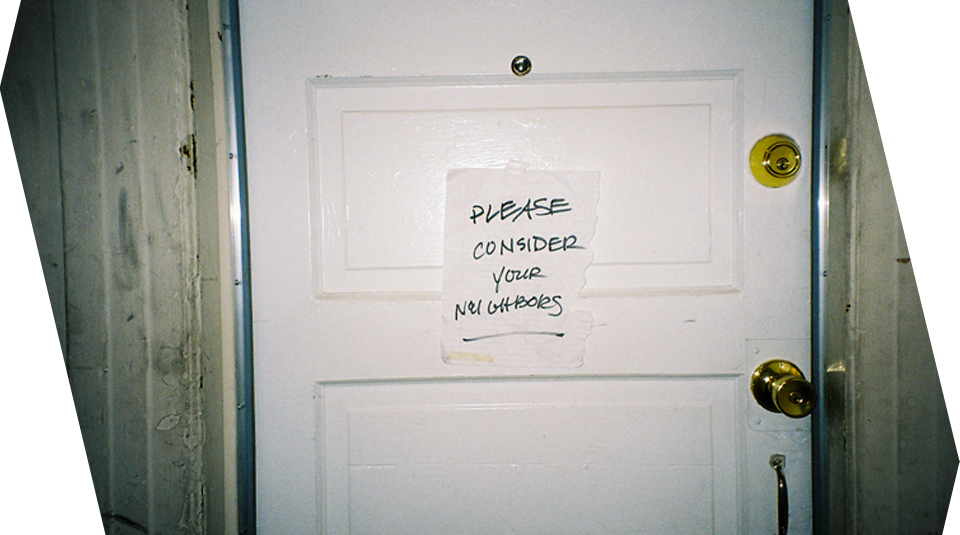 PLEASE
CONSIDER
YOUR
NEIGHBORS